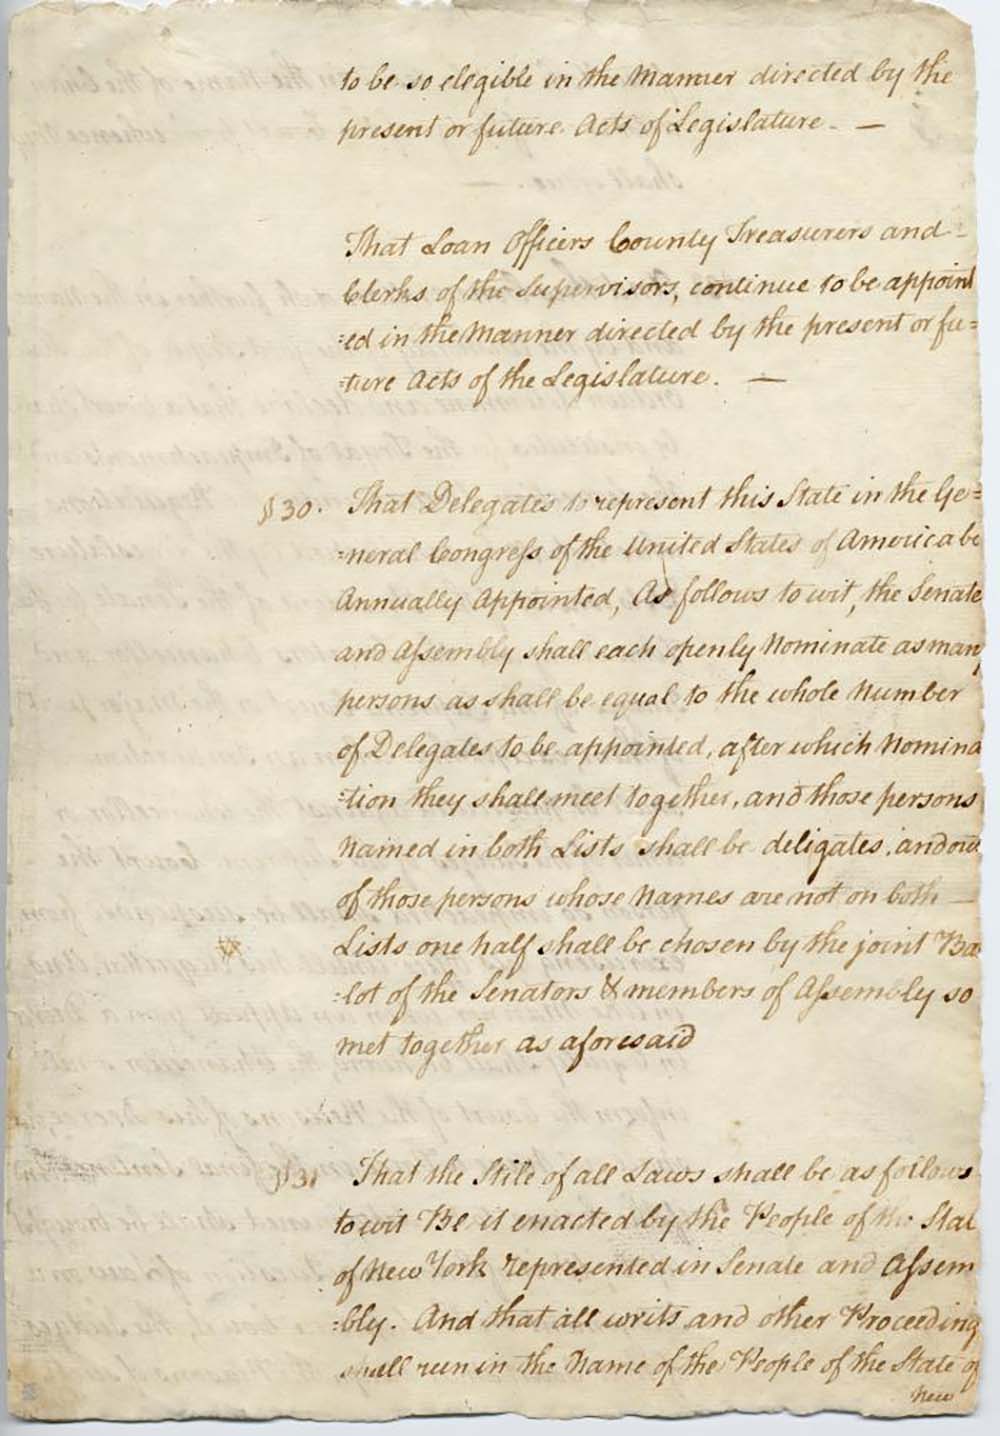 to be so elegible in the Manner directed by the
present or future Acts of Legislature. —
That Loan Officers County Treasurers and -
Clerks of the Supervisors, continue to be appoint
:ed in the Manner directed by the present or fu=
:ture Acts of the Legislature. —
§ 30. That Delegates to represent this State in the Ge=
:neral Congreſs of the United States of America be
Annually Appointed, As follows to wit, the Senate
and Aſsembly shall each openly Nominate as many
persons as shall be equal to the whole Number
of Delegates to be appointed, after which Nomina
:tion they shall meet together, and those persons
Named in both Lists shall be deligates, and out
of those persons whose Names are not on both —
Lists one half shall be chosen by the joint Bal
:lot of the Senators & members of Aſsembly so
met together as aforesaid
§ 31 That the Stile of all Laws shall be as follows
to wit Be it enacted by the People of the State
of New York represented in Senate and Aſsem
:bly. And that all writs and other Proceeding
shall run in the Name of the People of the State of
New